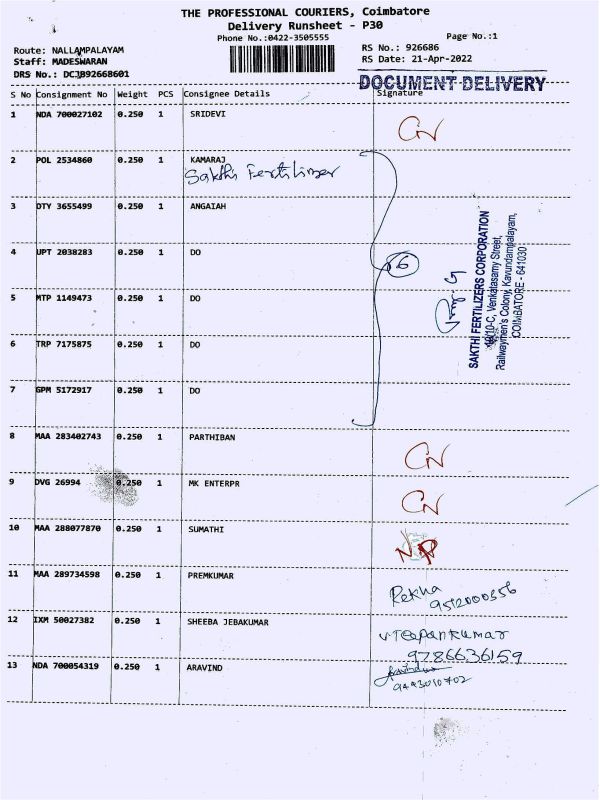 THE PROFESSIONAL COURIERS, Coimbatore
Delivery Runsheet - P30
Phone No.:0422-3505555
Page No.:1
Route: NALLAMPALAYAM
RS No.: 926686
Staff: MADESWARAN
RS Date: 21-Apr-2022
DRS No.: DCJB92668601
DOCUMENT DELIVERY
S No Consignment No Weight PCS Consignee Details Signature
1 NDA 700027102 0.250 1 SRIDEVI CN
2 POL 2534860 0.250 1 KAMARAJ
Sakthi Fertilizer
3 DTY 3655499 0.250 1 ANGAIAH
4 UPT 2038283 0.250 1 DO
6
5 MTP 1149473 0.250 1 DO
6 TRP 7175875 0.250 1 DO
7 GPM 5172917 0.250 1 DO
SAKTHI FERTILIZERS CORPORATION
Venkatasamy Street,
Railwaymen's Colony, Kavundampalayam,
COIMBATORE - 641030
8 MAA 283402743 0.250 1 PARTHIBAN CN
9 DVG 26994 0.250 1 MK ENTERPR CN
10 MAA 288077870 0.250 1 SUMATHI
11 MAA 289734598 0.250 1 PREMKUMAR Rekha
12 IXM 50027382 0.250 1 SHEEBA JEBAKUMAR
9786636159
13 NDA 700054319 0.250 1 ARAVIND
9443010702